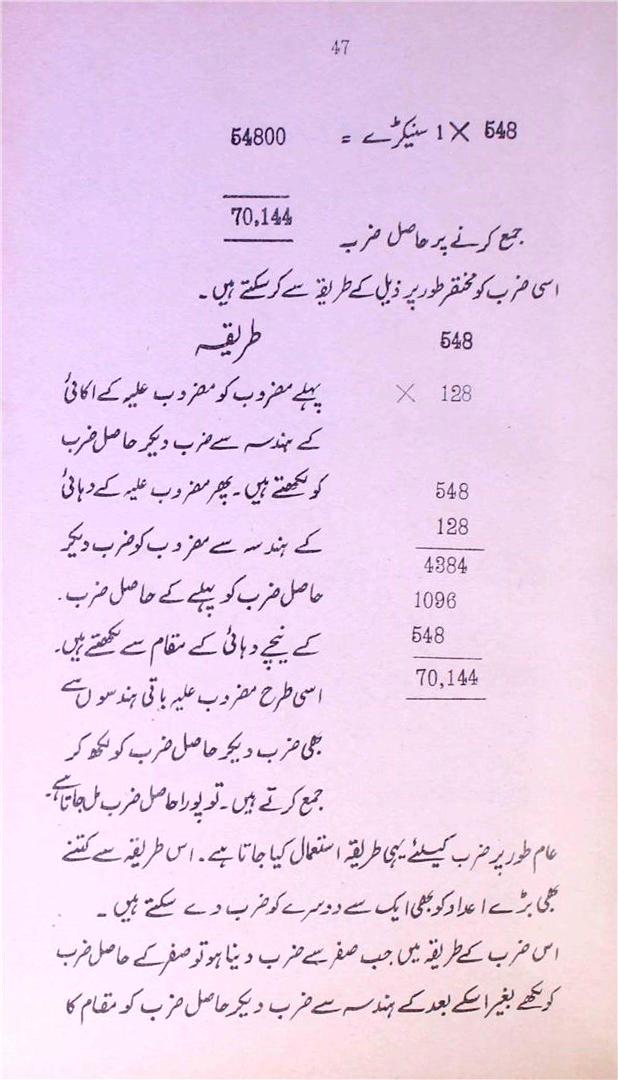 47
548 × 1 سنیکڑے = 54800
70,144
جمع کرنے پر حاصل ضرب
اسی ضرب کو مختقر طور پر ذیل کے طریقہ سے کرسکتے ہیں۔
548 طریقہ
× 128 پہلے مضروب کو مضروب علیہ کے اکائی
کے ہندسہ سے ضرب دیکر حاصل ضرب
548 کو لکھتے ہیں۔ پھر مضروب علیہ کے دہائی
128 کے ہندسہ سے مضروب کو ضرب دیکر
4384
1096 حاصل ضرب کو پہلے کے حاصل ضرب
548 کے نیچے دہائی کے مقام سے لکھتے ہیں۔
70,144 اسی طرح مضروب علیہ باقی ہندسوں سے
بھی ضرب دیکر حاصل ضرب کو لکھ کر
جمع کرتے ہیں۔ تو پورا حاصل ضرب مل جاتا ہے۔
عام طور پر ضرب کیلئے یہی طریقہ استعمال کیا جاتا ہے۔ اس طریقہ سے کتنے
بھی بڑے اعداد کو بھی ایک سے دوسرے کو ضرب دے سکتے ہیں۔
اس ضرب کے طریقہ میں جب صفر سے ضرب دینا ہو تو صفر کے حاصل ضرب
کو لکھے بغیر اسکے بعد کے ہندسہ سے ضرب دیکر حاصل ضرب کو مقام کا